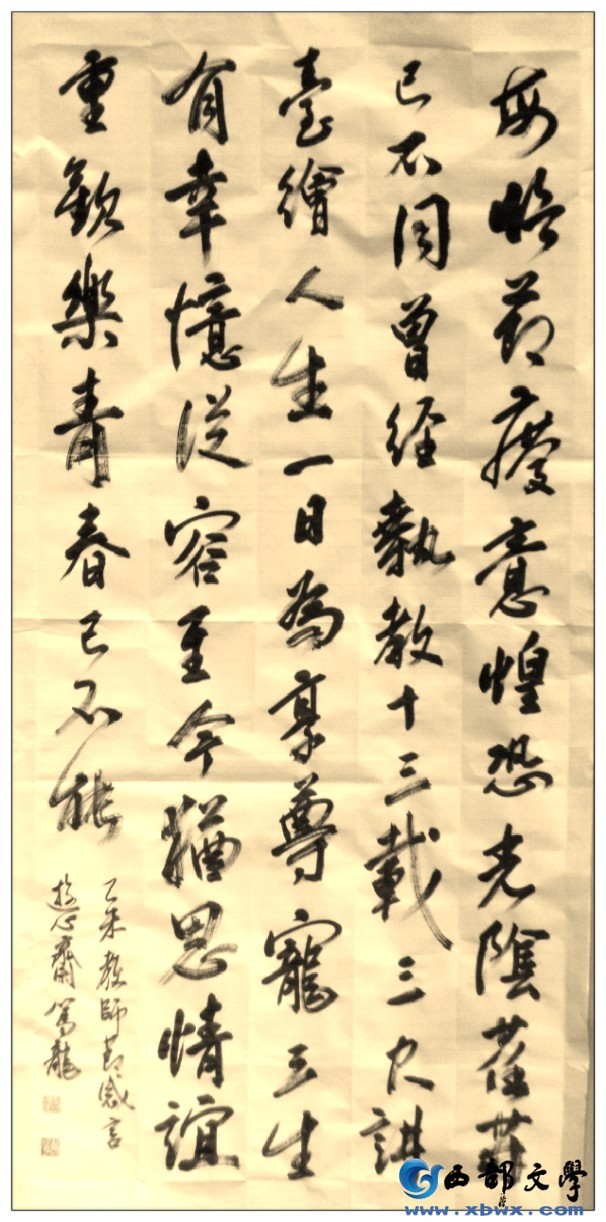 每臨節慶意惶恐光陰荏苒
已不同曾經執教十三載三尺講
臺繪人生一日為享尊寵三生
有幸憶從容至今猶思情誼
重歡樂青春已不能
乙未教師節感言
心齋篤龍
西部文學
www.xbwx.com